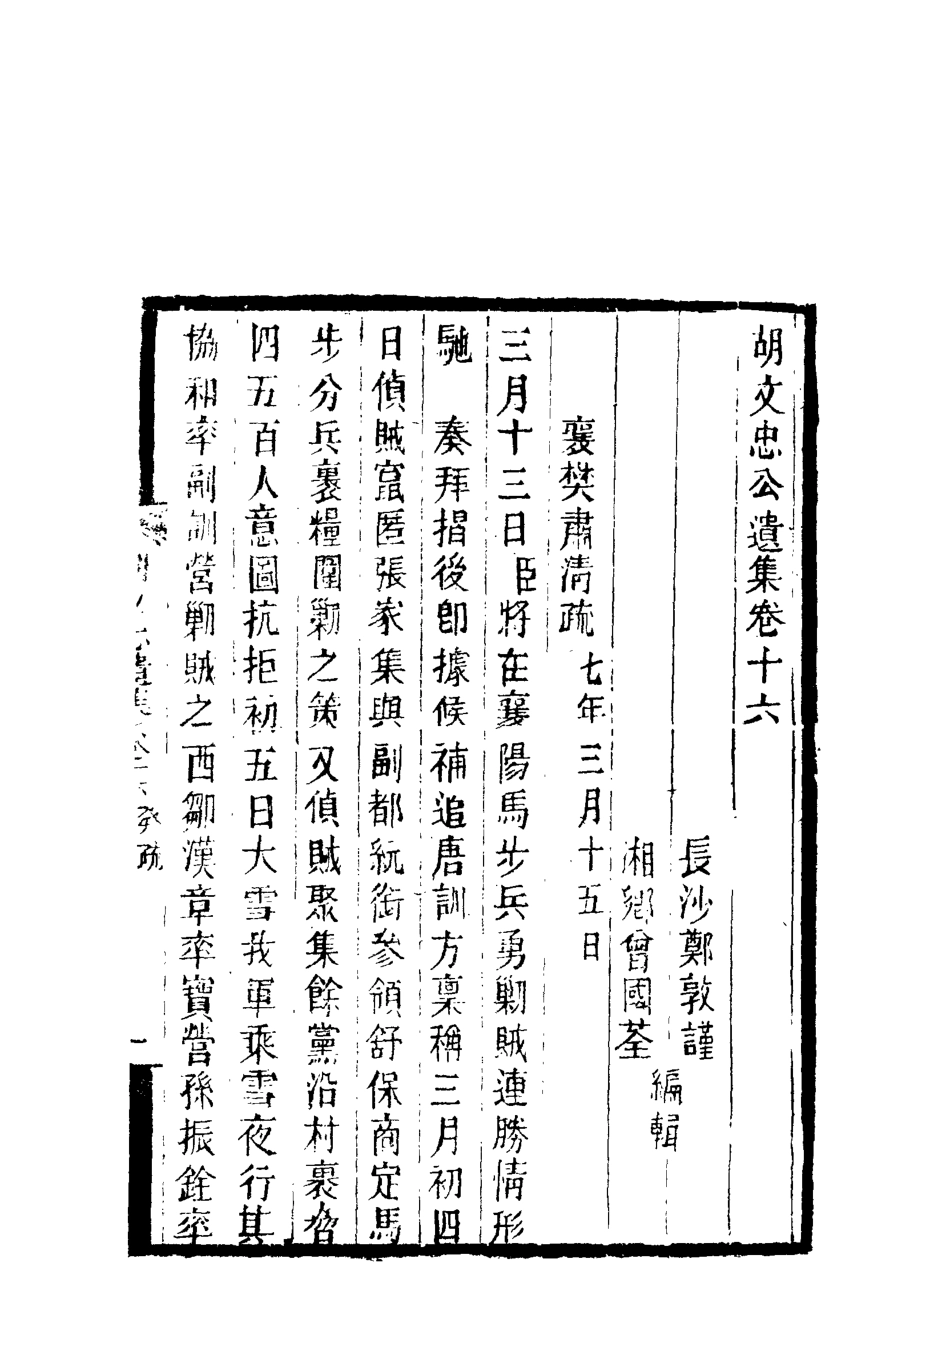 胡文忠公遺集卷十六
長沙鄭敦謹
湘鄉曾國荃
編輯
襄樊肅清疏 七年三月十五日
三月十三日臣將在襄陽馬步兵勇勦賊連勝情形
馳 奏拜揩後卽據候補追唐訓方稟稱三月初四
日偵賊竄匿張家集與副都統銜參領舒保商定馬
步分兵裹糧圍勦之策又偵賊聚集餘黨沿村裹脅
四五百人意圖抗拒初五日大雪我軍乘雪夜行其
協和率副訓營勦賊之西鄒漢章率寶營孫振銓率
遺集 疏
一